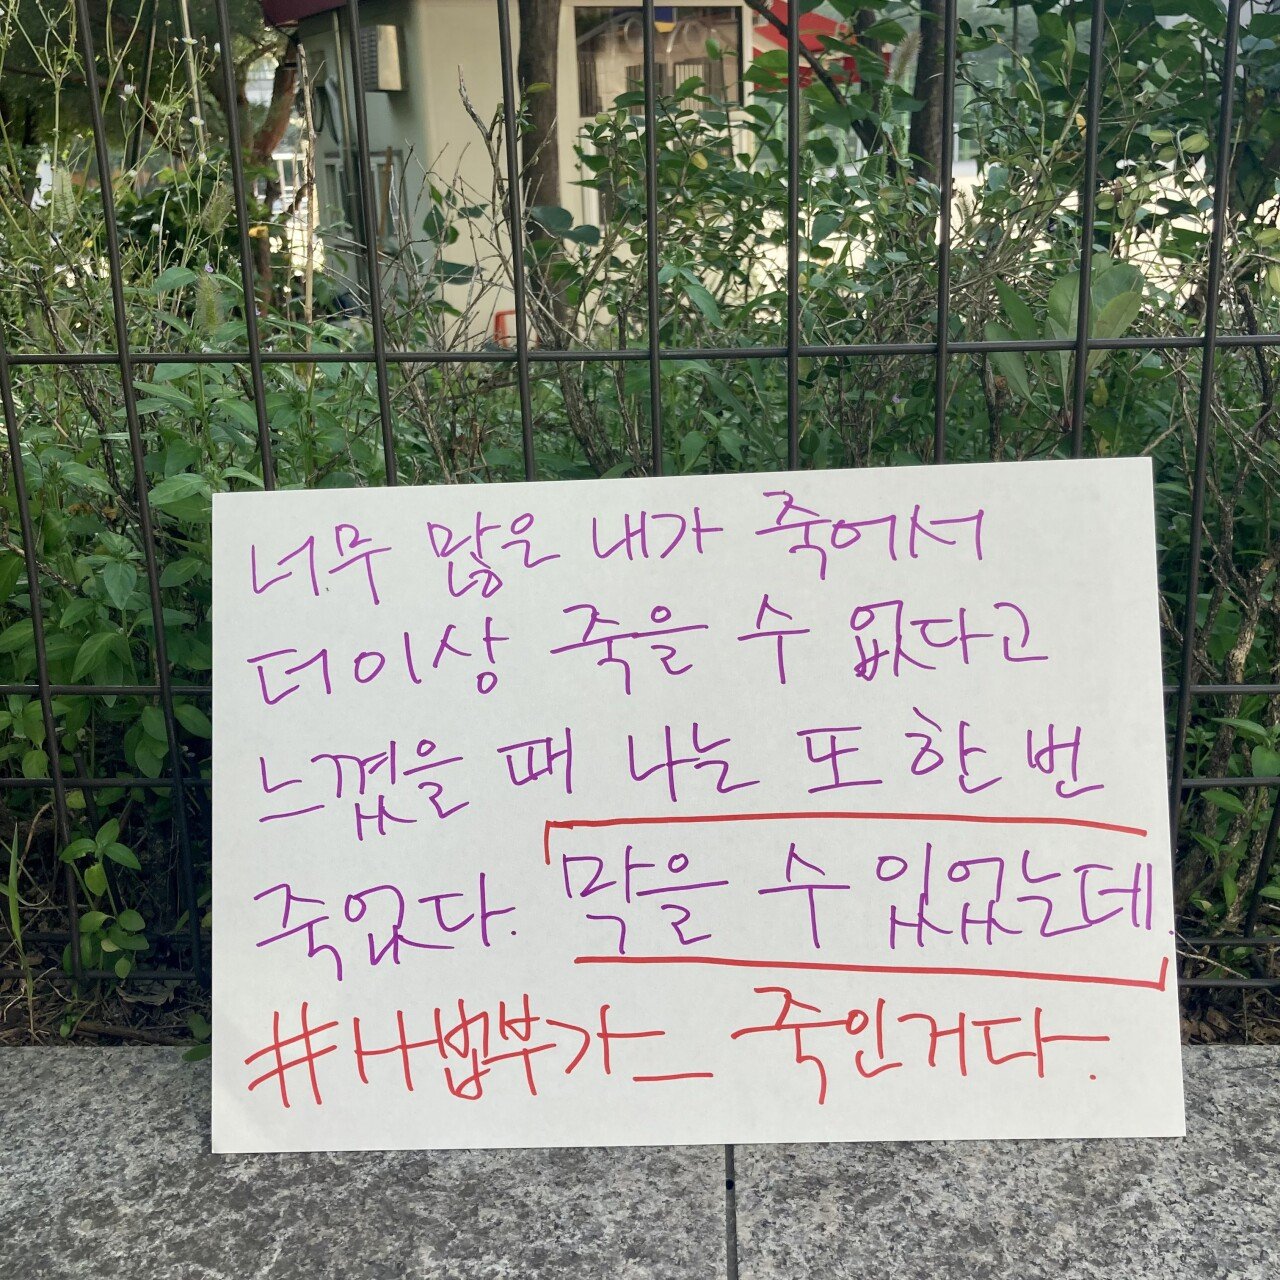 너무 많은 내가 죽어서
더이상 죽을 수 없다고
느꼈을 때 나는 또 한 번
죽었다. 막을 수 있었는데.
#사법부가_ 죽인거다.